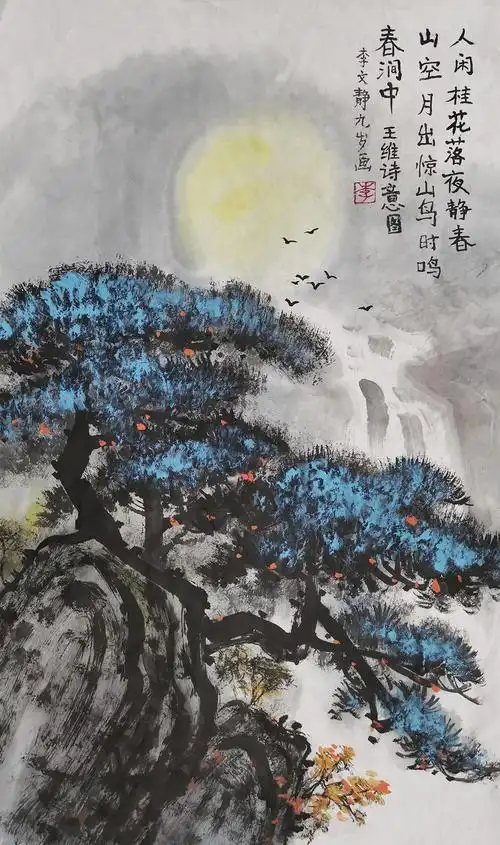 人闲桂花落夜静春
山空月出惊山鸟时鸣
春涧中 王维诗意图
李文静九岁画
李